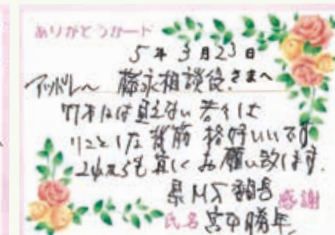 ありがとうカード
5年3月23日
アッパレ〜 藤永相談役さまへ
77才には見えない若くして
りんとした背筋 格好いいです
これからも宜しくお願い致します。
感謝
氏名 宮中勝年